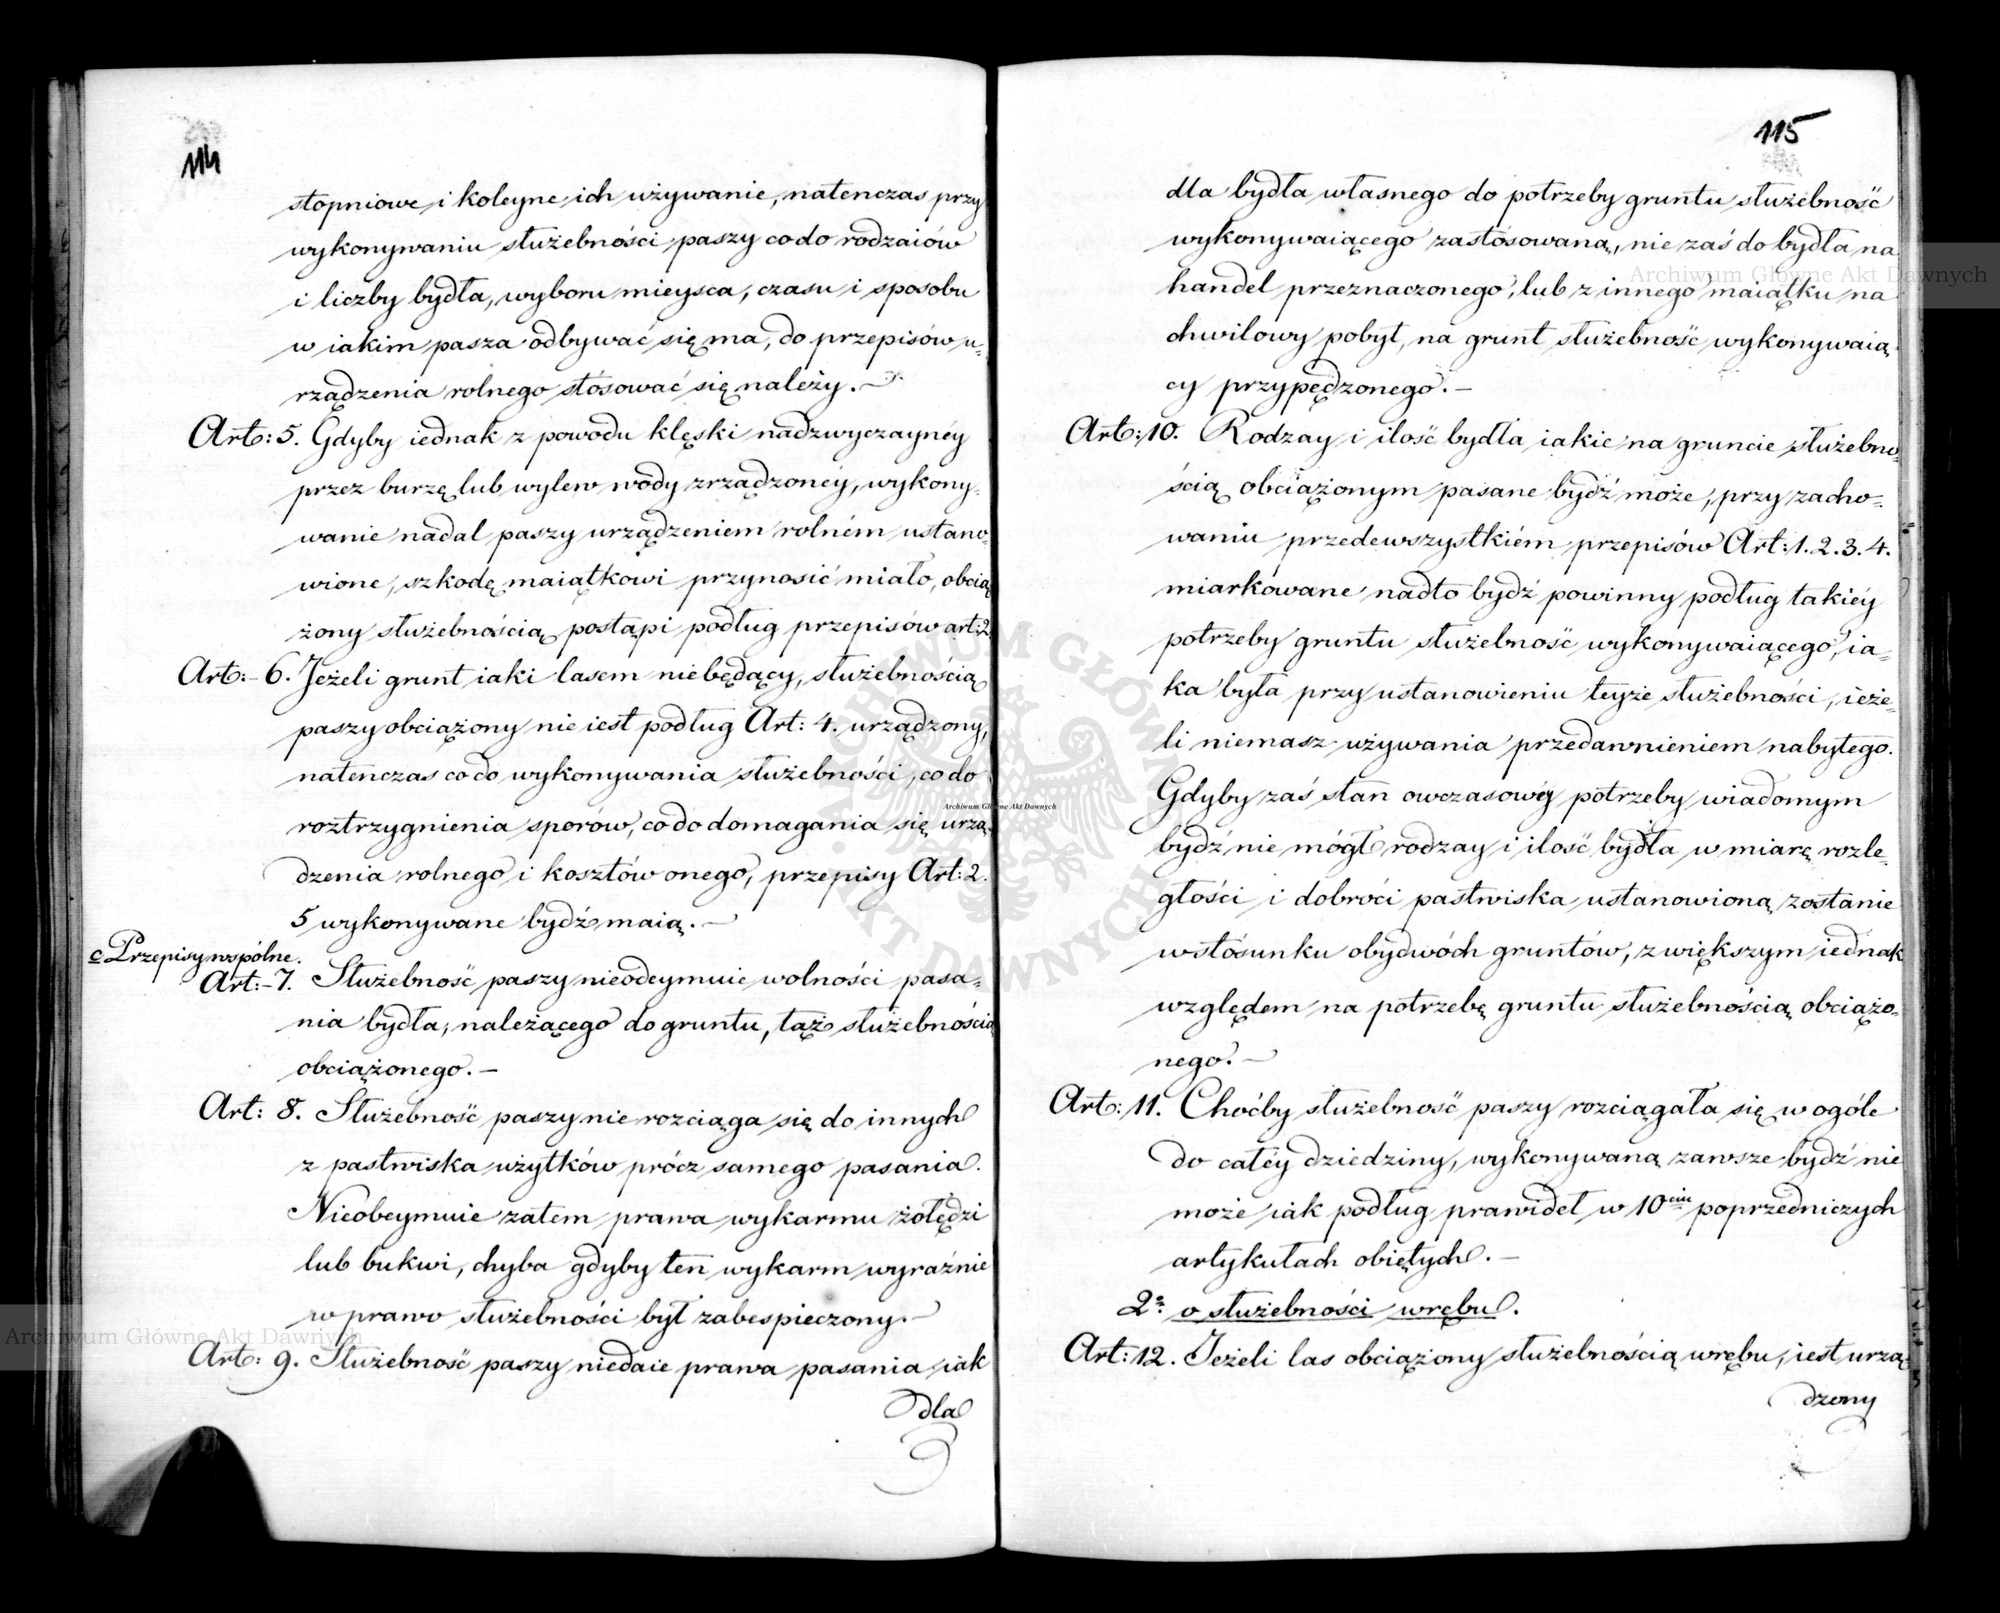 114
stopniowe i koleyne ich używanie, natenczas przy
wykonywaniu służebności paszy co do rodzaiów
i liczby bydła, wyboru mieysca, czasu i sposobu
w iakim pasza odbywać się ma, do przepisów u-
rządzenia rolnego stósować się należy. —
Art: 5. Gdyby iednak z powodu klęski nadzwyczaynéy
przez burzę lub wylew wody zrządzonéy, wykony-
wanie nadal paszy urządzeniem rolném ustano-
wione, szkodę maiątkowi przynosić miało, obcią
żony służebnością postąpi podług przepisów art: 2.
Art: - 6. Jeżeli grunt iaki lasem niebędący, służebnością
paszy obciążony nie iest podług Art: 4. urządzony,
natenczas co do wykonywania służebności, co do
roztrzygnienia sporów, co do domagania się urzą-
dzenia rolnego i kosztów onego, przepisy Art: 2.
5 wykonywane bydź maią. —
c Przepisy wspólne.
Art: - 7. Służebność paszy nieodeymuie wolności pasa-
nia bydła, należącego do gruntu, tąż służebnością
obciążonego. —
Art: 8. Służebność paszy nie rozciąga się do innych
z pastwiska użytków prócz samego pasania.
Nieobeymuie zatem prawa wykarmu żołędzi
lub bukwi, chyba gdyby ten wykarm wyraźnie
w prawo służebności był zabespieczony. —
Art: 9. Służebność paszy niedaie prawa pasania iak
dla
115
dla bydła własnego do potrzeby gruntu służebność
wykonywaiącego zastósowaną, nie zaś do bydła na
handel przeznaczonego, lub z innego maiątku na
chwilowy pobyt, na grunt służebność wykonywaią
cy przypędzonego. —
Art: 10. Rodzay i ilość bydła iakie na gruncie służebno-
ścią obciążonym pasane bydź może, przy zacho-
waniu przedewszystkiém przepisów Art: 1. 2. 3. 4.
miarkowane nadto bydź powinny podług takiéy
potrzeby gruntu służebność wykonywaiącego, ia-
ka była przy ustanowieniu teyże służebności, ieże-
li niemasz używania przedawnieniem nabytego.
Gdyby zaś stan owczasowéy potrzeby wiadomym
bydź nie mógł rodzay i ilość bydła w miarę rozle-
głości i dobroci pastwiska ustanowioną zostanie
w stósunku obydwóch gruntów, z większym iednak
względem na potrzebę gruntu służebnością obciążo-
nego. —
Art: 11. Choćby służebność paszy rozciągała się w ogóle
do całéy dziedziny, wykonywaną zawsze bydź nie
może iak podług prawideł w 10ciu poprzedniczych
artykułach obiętych. —
2e: o służebności wrębu.
Art: 12. Jeżeli las obciążony służebnością wrębu, iest urzą-
dzony
Archiwum Główne Akt Dawnych
Archiwum Główne Akt Dawnych
Archiwum Główne Akt Dawnych
ARCHIWUM GŁÓWNE AKT DAWNYCH